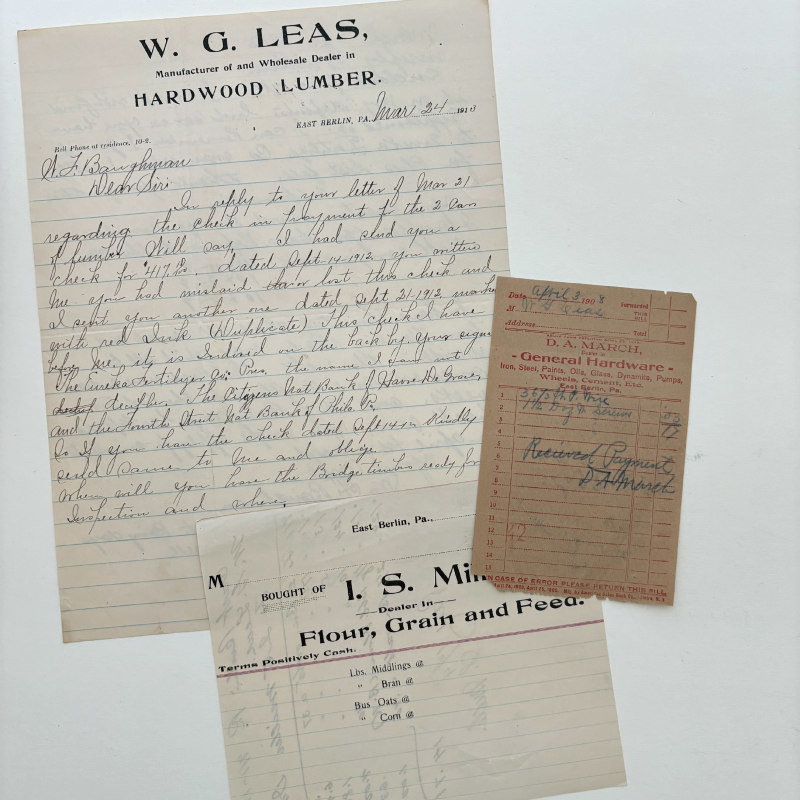 W. G. LEAS,
Manufacturer of and Wholesale Dealer in
HARDWOOD LUMBER.
EAST BERLIN, PA. Mar 24 1913
Bell Phone at residence, 10-2.
S. F. Baughman
Dear Sir:
In reply to your letter of Mar 21
regarding the check in payment for the 2 Cars
of lumber Will say, I had send you a
check for $417.10/100. dated Sept-14-1912, you written
me you had mislaid or lost this check and
I sent you another one dated Sept 21-1912, marked
with red Ink (Duplicate) This check I have
before me, it is Indorsed on the back by Your signe
The Eureka Fertilizer Co. Pres. the name I can not
decipher, The Citizens Nat Bank of Havre De Grace,
and the Fourth Street Nat Bank of Phila Pa.
So If you have the check dated Sept 14-12 Kindly
send same to me and oblige
When will you have the Bridge timbers ready for
Inspection and where,
Date April 3 1908
Forwarded
THIS BILL
M W G Leas
Address
Total
D. A. MARCH,
Dealer in
- General Hardware -
Iron, Steel, Paints, Oils, Glass, Dynamite, Pumps,
Wheels, Cement, Etc.
East Berlin, Pa.
1
2
3
4
5
6
7
8
9
10
11
12
13
14
15
Received Payment
D. A. March
42
IN CASE OF ERROR PLEASE RETURN THIS BILL
East Berlin, Pa.,
M
BOUGHT OF I. S. Mi
Dealer In
Flour, Grain and Feed.
Terms Positively Cash.
Lbs. Middlings @
" Bran @
Bus Oats @
" Corn @